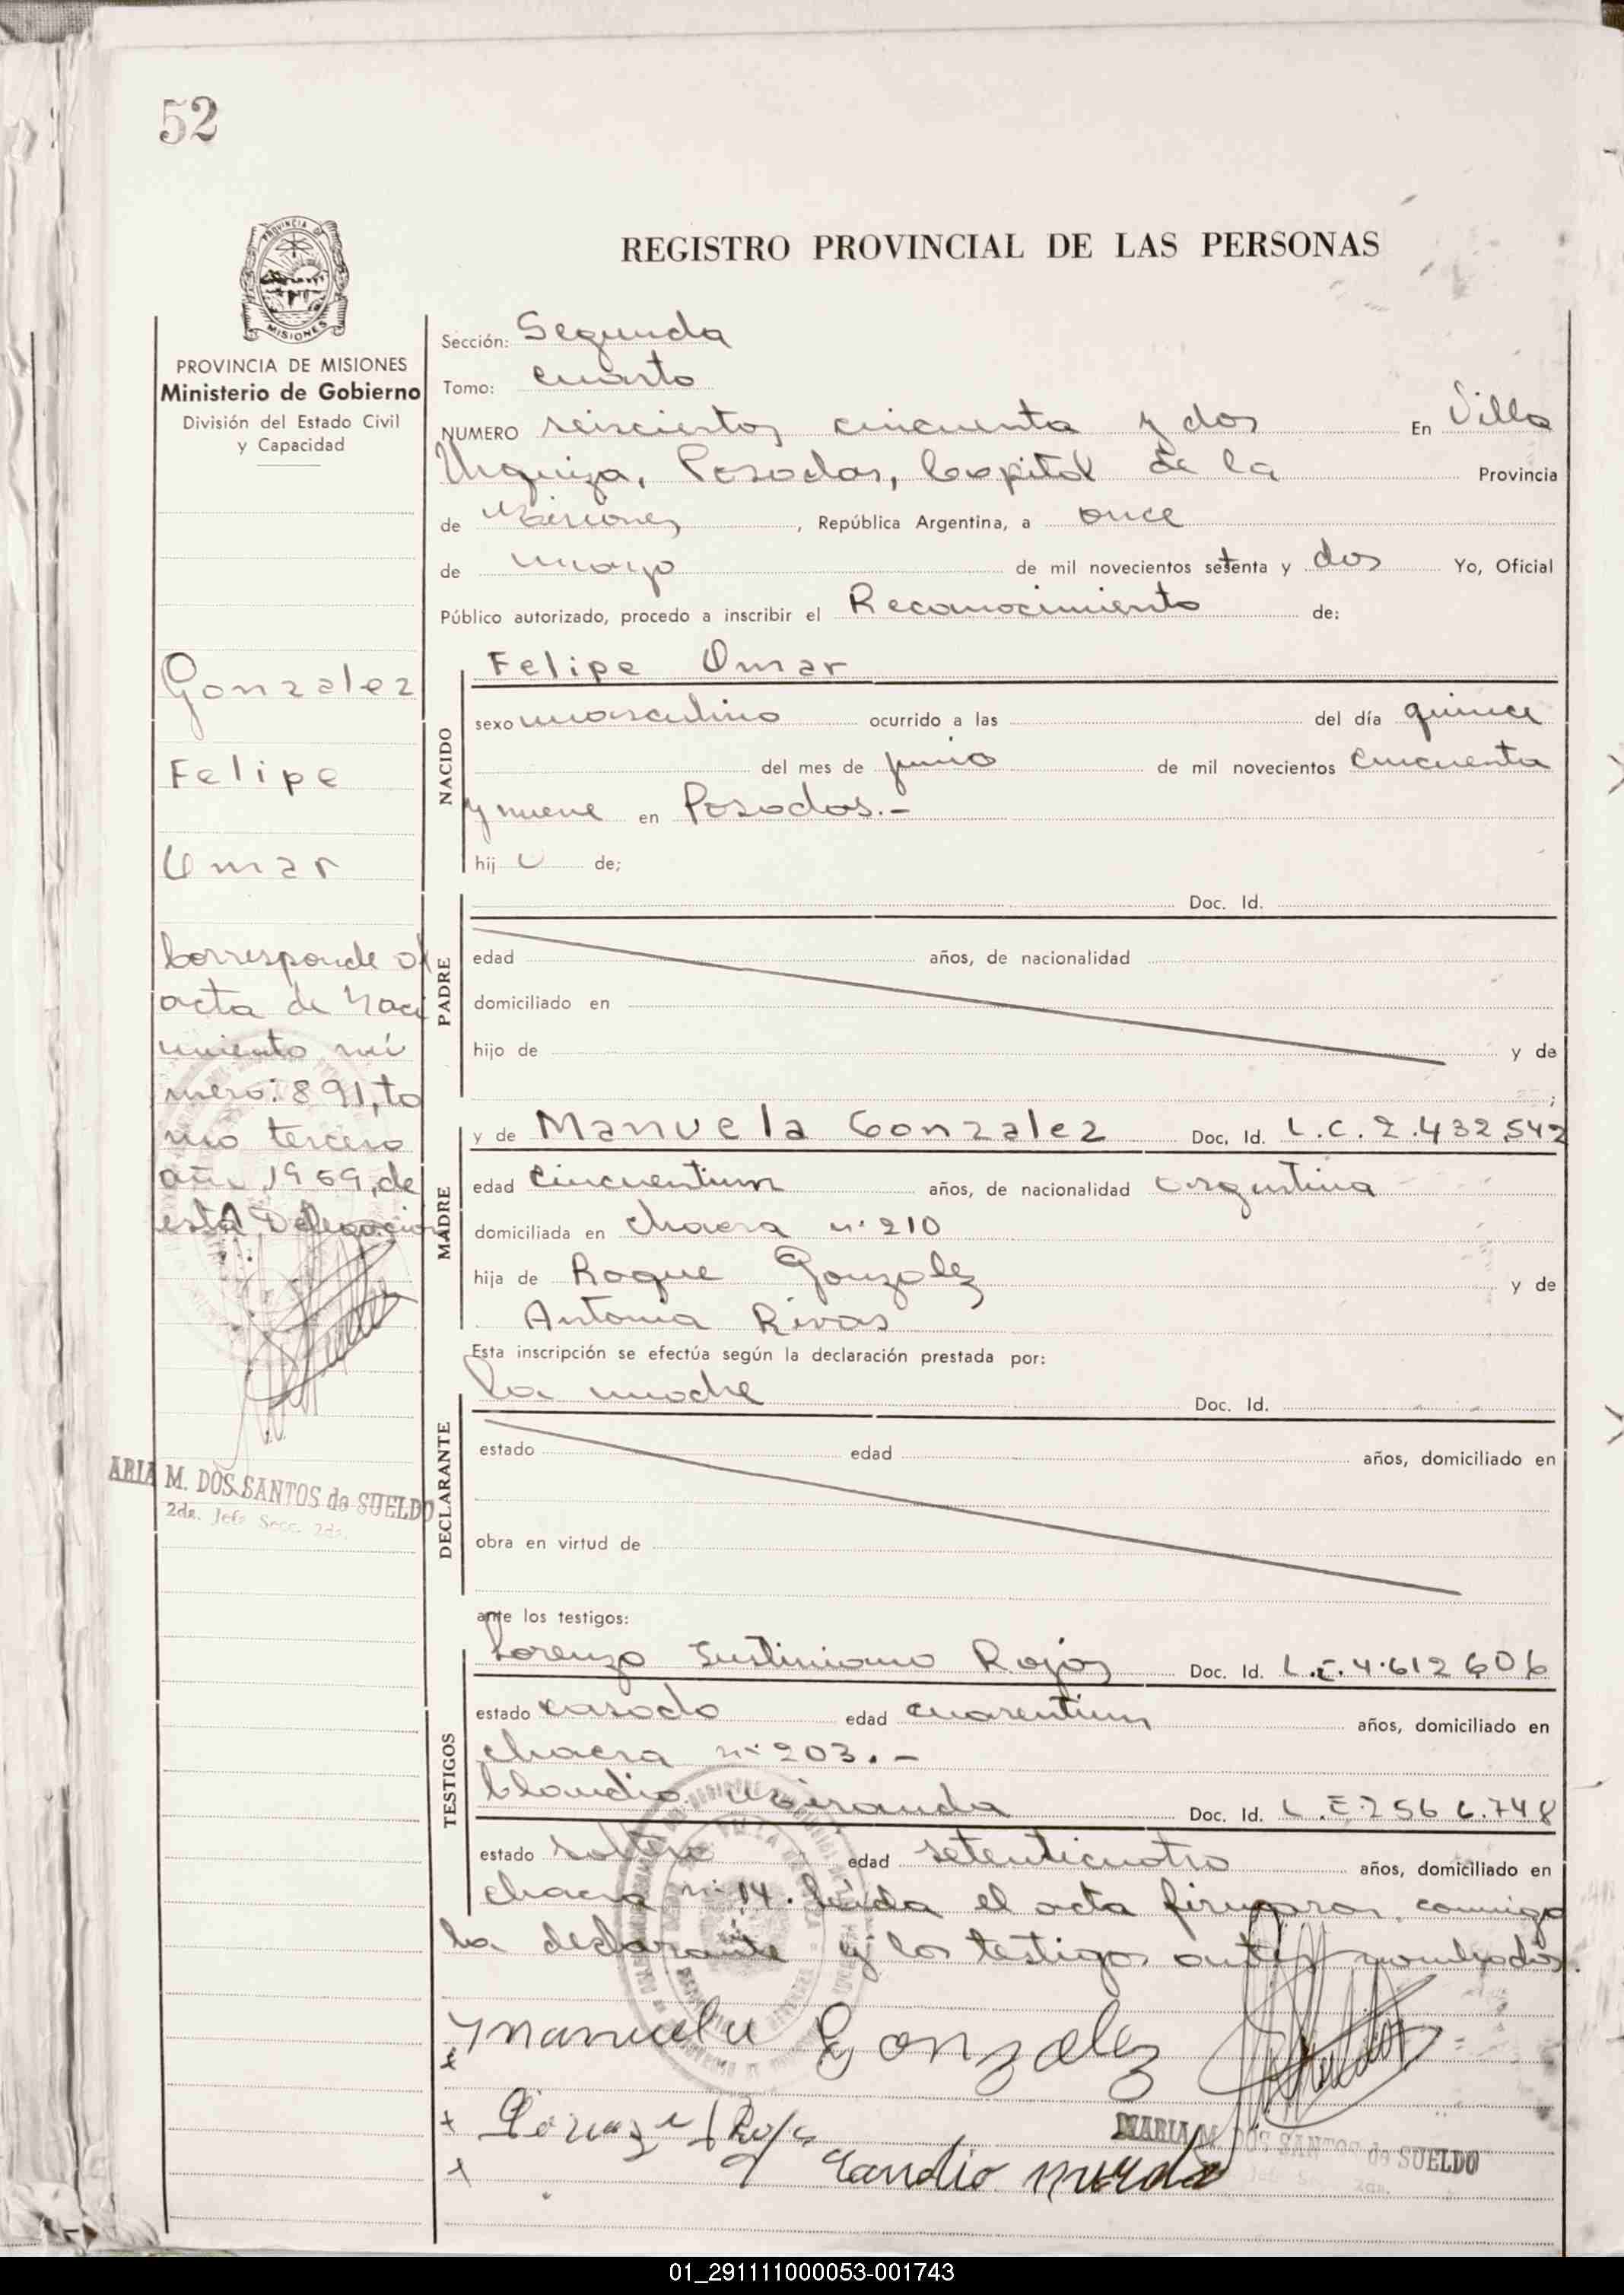 52
PROVINCIA DE
MISIONES
REGISTRO PROVINCIAL DE LAS PERSONAS
PROVINCIA DE MISIONES
Ministerio de Gobierno
División del Estado Civil
y Capacidad
Gonzalez
Felipe
Omar
Corresponde al
acta de Naci
miento nú
mero: 891, to
mo tercero
año 1959, de
esta Delegacion
ARIA M. DOS SANTOS de SUELDO
2da. Jefe Secc. 2da.
Sección: Segunda
Tomo: cuarto
NUMERO seiscientos cincuenta y dos En Villa
Urquiza, Posadas, Capital de la Provincia
de Misiones, República Argentina, a once
de mayo de mil novecientos setenta y dos Yo, Oficial
Público autorizado, procedo a inscribir el Reconocimiento de:
NACIDO
Felipe Omar
sexo masculino ocurrido a las del día quince
del mes de junio de mil novecientos cincuenta
y nueve en Posadas.-
hij o de;
PADRE
Doc. Id.
edad años, de nacionalidad
domiciliado en
hijo de y de
;
MADRE
y de Manuela Gonzalez Doc. Id. L.C. 2.432.542
edad cincuentiun años, de nacionalidad argentina
domiciliada en chacra nº 210
hija de Roque Gonzalez y de
Antonia Rivas
Esta inscripción se efectúa según la declaración prestada por:
DECLARANTE
la madre Doc. Id.
estado edad años, domiciliado en
obra en virtud de
ante los testigos:
TESTIGOS
Lorenzo Justiniano Rojas Doc. Id. L.E. 4.612 606
estado casado edad cuarentiun años, domiciliado en
chacra nº 203.-
Claudio Miranda Doc. Id. L.E. 2566.748
estado soltero edad setenticuatro años, domiciliado en
chacra nº 14. Leida el acta firmaron conmigo
la declarante y los testigos antes nombrados.
Manuela Gonzalez
MARIA M. DOS SANTOS de SUELDO
01_291111000053-001743